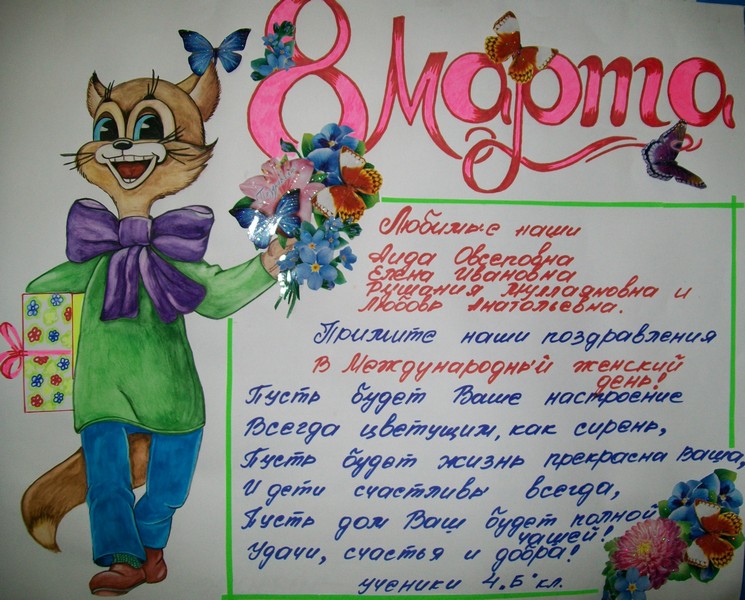 8 Марта
Любимые наши
Аида Овсеповна
Елена Ивановна
Рушания Мулладновна и
Любовь Анатольевна.
Примите наши поздравления
В Международный женский
день!
Пусть будет Ваше настроение
Всегда цветущим, как сирень,
Пусть будет жизнь прекрасна Ваша,
И дети счастливы всегда,
Пусть дом Ваш будет полной
чашей!
Удачи, счастья и добра!
ученики 4 "Б" кл.